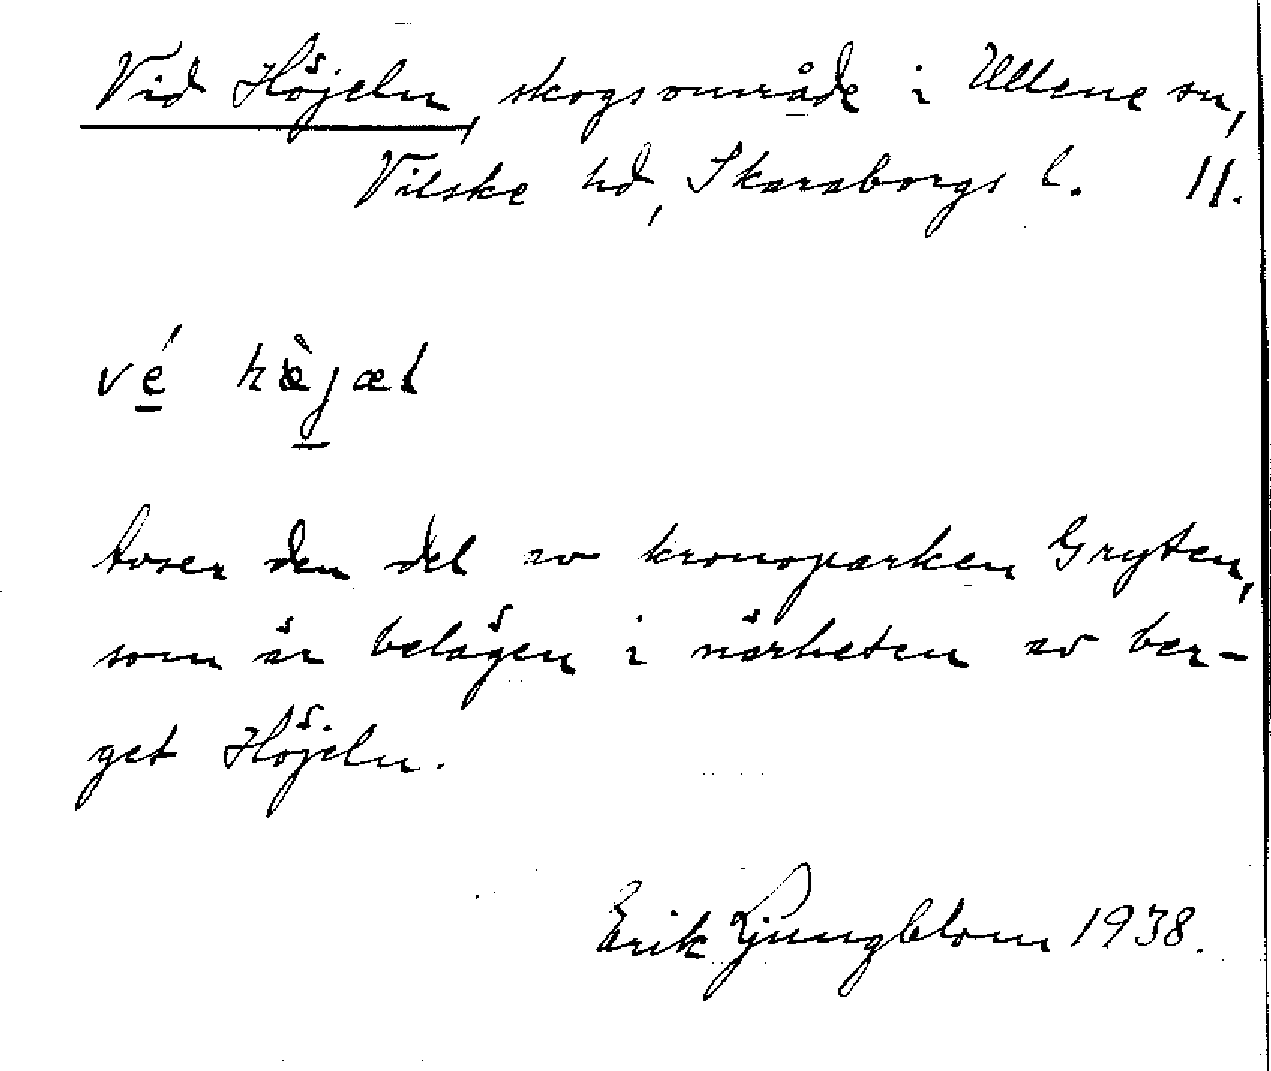 Vid Höjeln, skogsområde i Ullene sn,
Vilske hd, Skaraborgs l. 11.
vé hæ̀jæl
Avser den del av kronoparken Gryten,
som är belägen i närheten av ber-
get Höjeln.
Erik Ljungblom 1938.